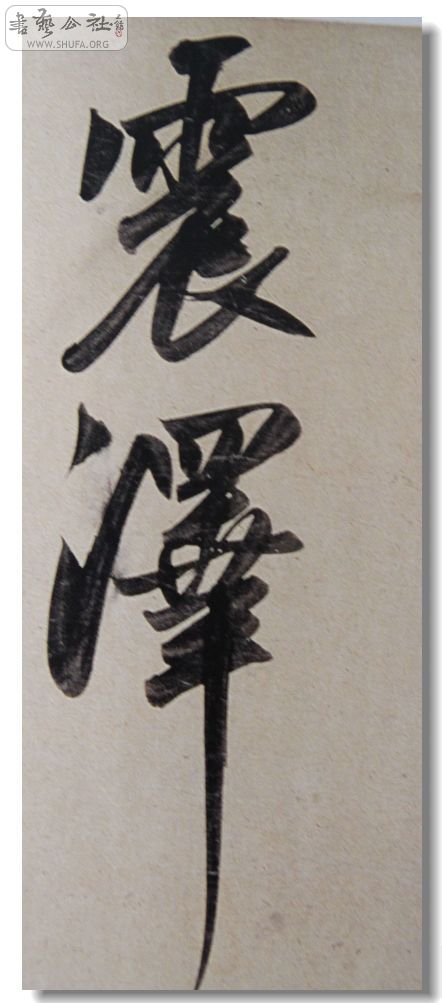 書藝公社
WWW.SHUFA.ORG
震澤